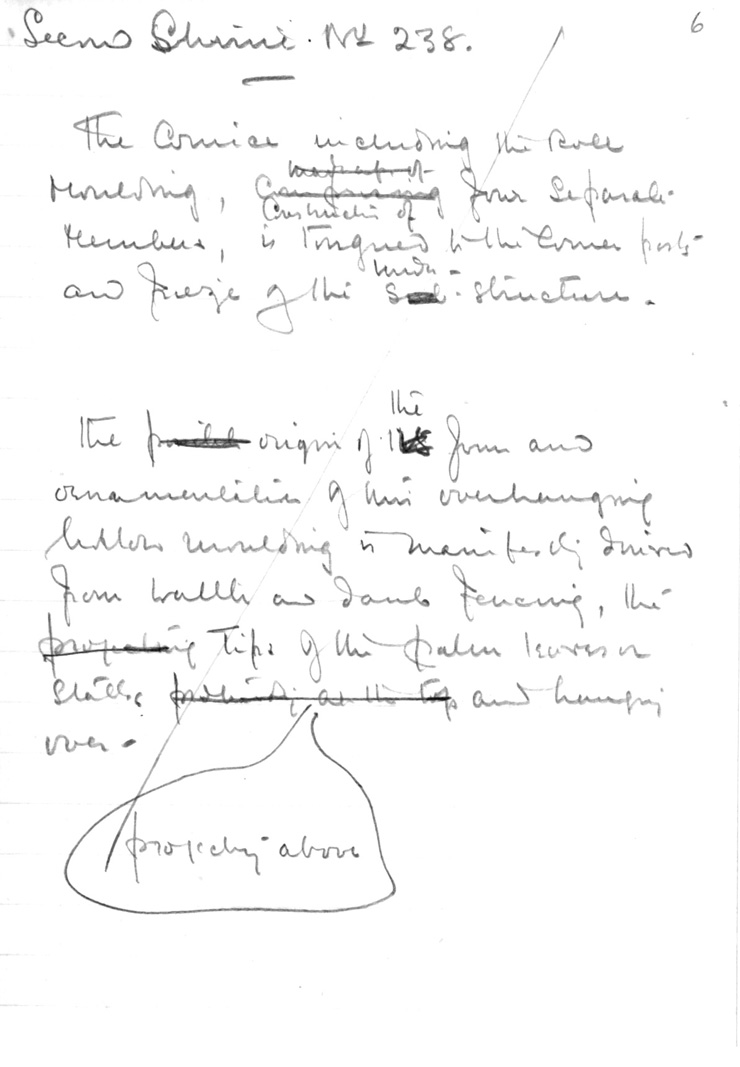 6
Second Shrine. No 238.
The Cornice including the Roll
made up of
Moulding, Comprising four Separate
Constructed of
Members, is Tongued to the Corner posts
under-
and Frieze of the Sub-structure.
the
The origin of its form and
ornamentation of this overhanging
hollow moulding is manifestly derived
from wattle and daub Fencing, the
projecting Tips of the palm leaves or
Stalks at the top and hanging
over.
projecting above